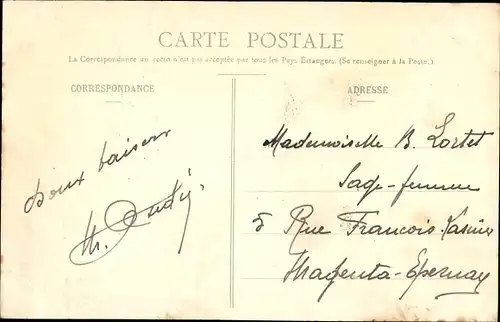 CARTE POSTALE
La Correspondance au recto n'est pas acceptée par tous les Pays Étrangers. (Se renseigner à la Poste.)
CORRESPONDANCE
ADRESSE
doux baisers
Mademoiselle B. Lortet
Sage-femme
5 Rue François
Magenta-Epernay